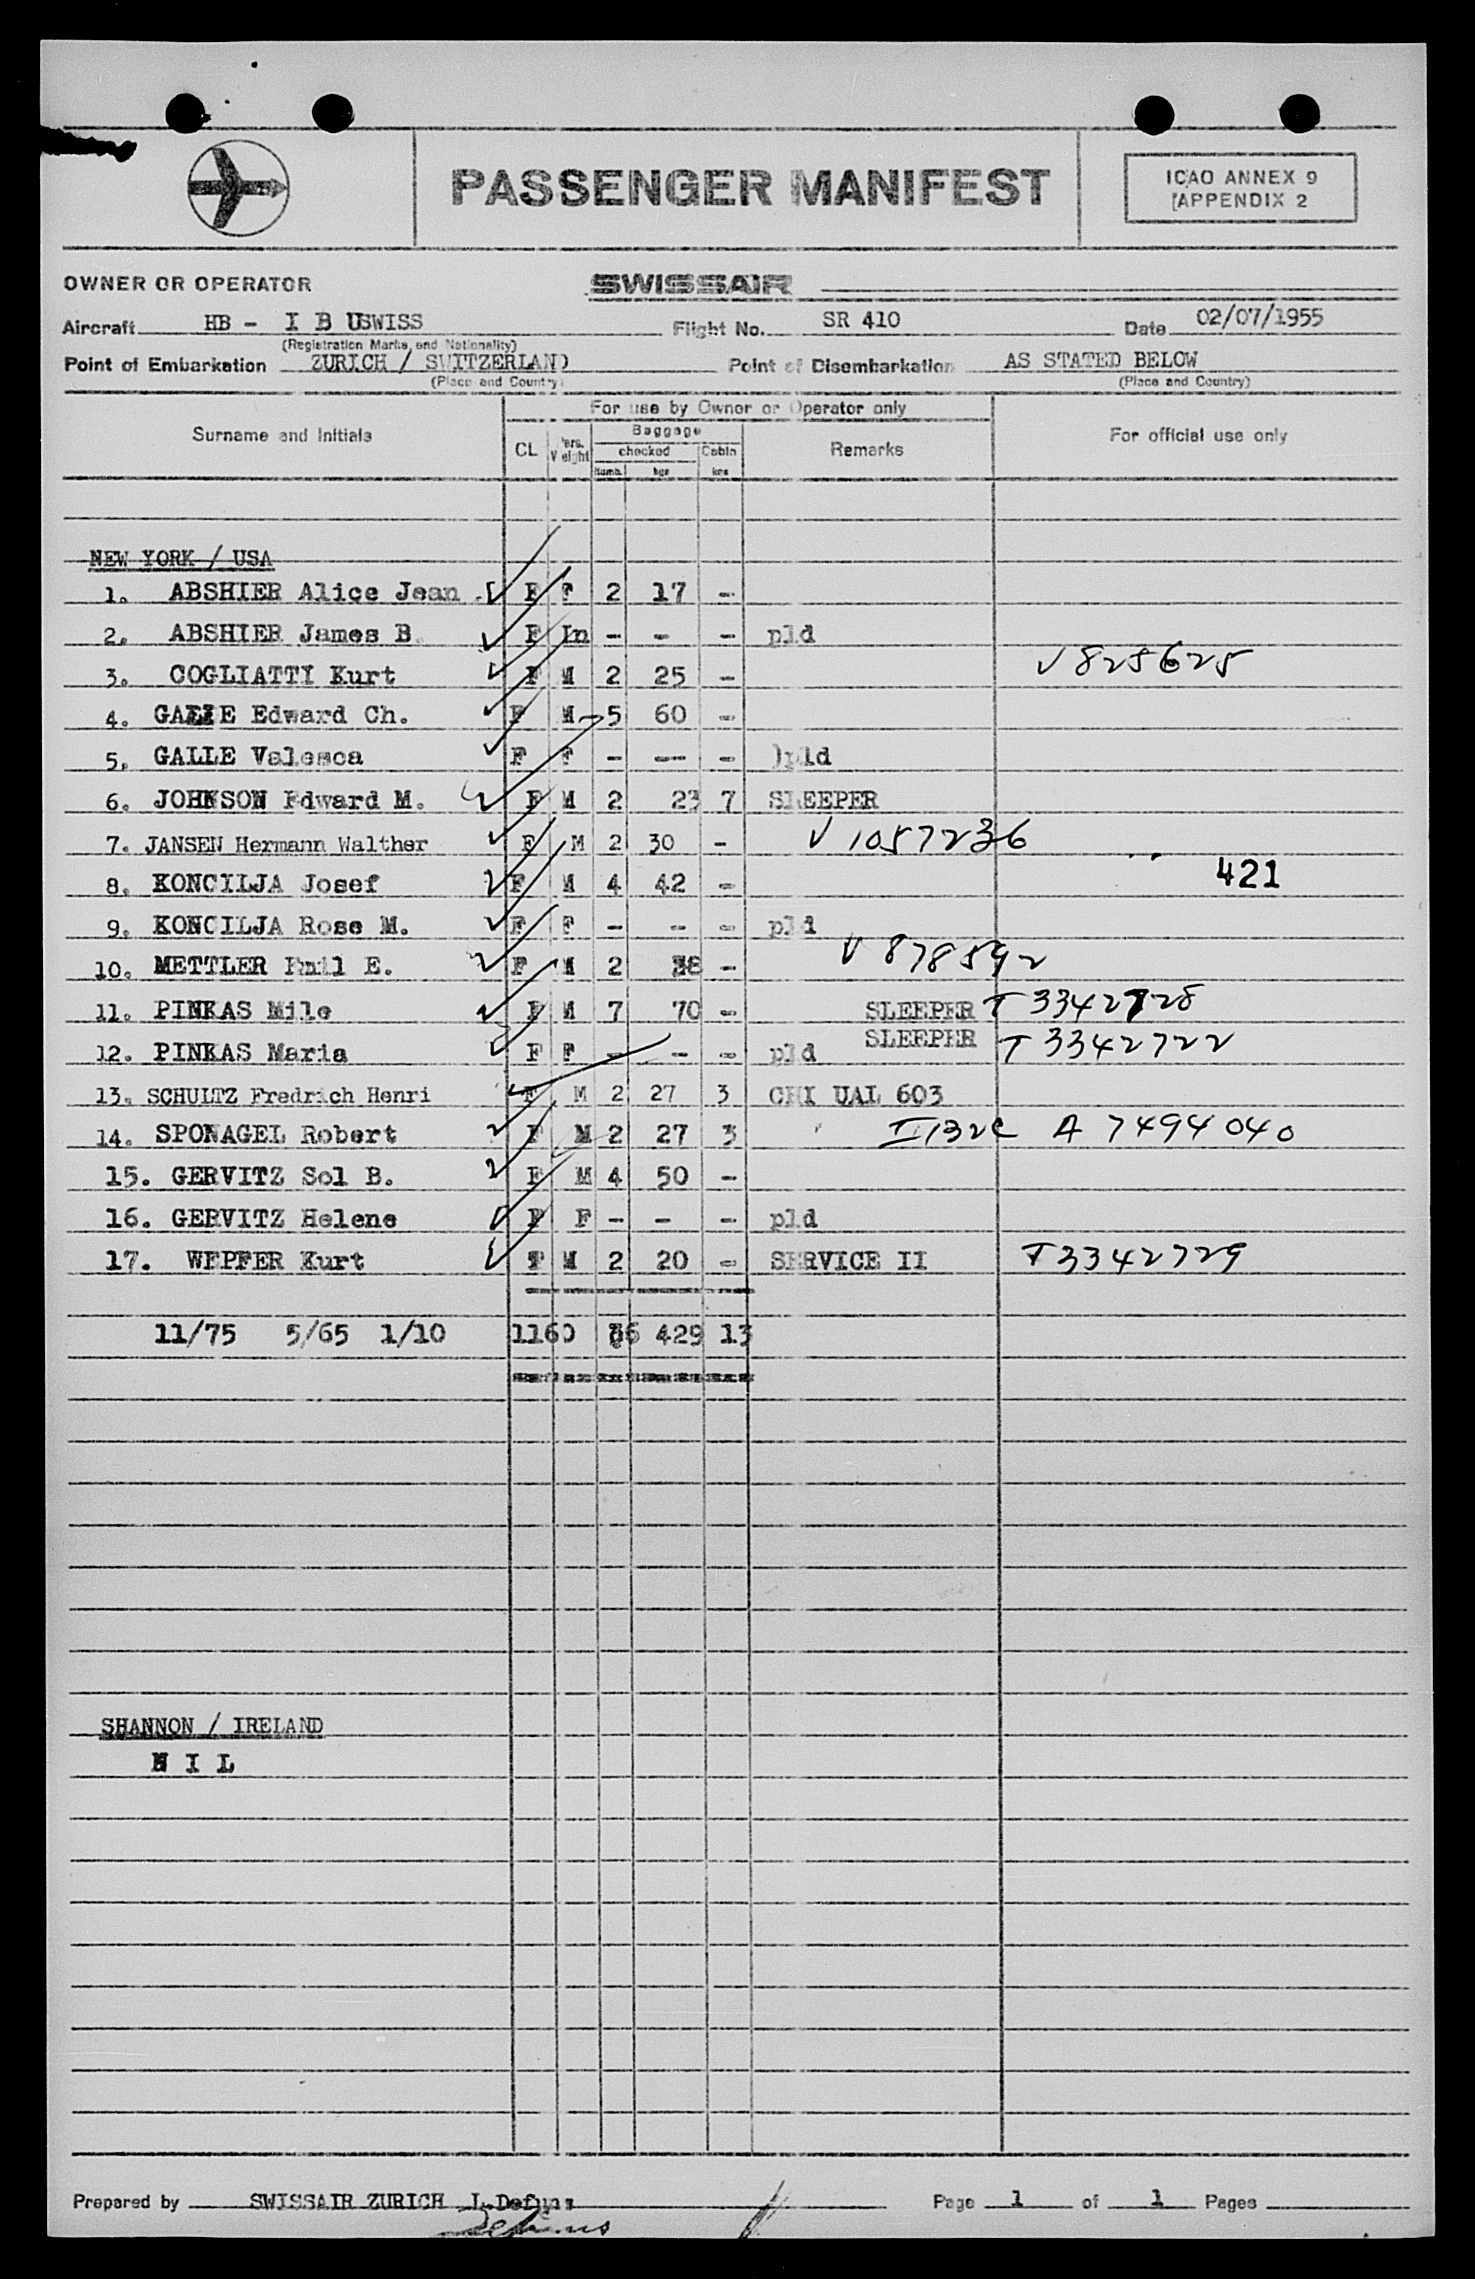 PASSENGER MANIFEST
ICAO ANNEX 9
APPENDIX 2
OWNER OR OPERATOR SWISSAIR
Aircraft HB - I B U SWISS Flight No. SR 410 Date 02/07/1955
(Registration Marks and Nationality)
Point of Embarkation ZURICH / SWITZERLAND Point of Disembarkation AS STATED BELOW
(Place and Country) (Place and Country)
For use by Owner or Operator only
Surname and Initials CL Pers. Weight Baggage Remarks For official use only
checked Cabin
Numb. kgs kgs
NEW YORK / USA
1. ABSHIER Alice Jean F F 2 17 -
2. ABSHIER James B. F In - - - pld
3. COGLIATTI Kurt F M 2 25 - V 825625
4. GALLE Edward Ch. F M 5 60 -
5. GALLE Valesca F F - -- - )pld
6. JOHNSON Edward M. F M 2 23 7 SLEEPER
7. JANSEN Hermann Walther F M 2 30 - V 1057236
421
8. KONCILJA Josef F M 4 42 -
9. KONCILJA Rose M. F F - - - pld
10. METTLER Emil E. F M 2 38 - V 878592
11. PINKAS Mile F M 7 70 - SLEEPER T 3342728
12. PINKAS Maria F F - - - pld SLEEPER T 3342722
13. SCHULTZ Fredrich Henri F M 2 27 3 CHI UAL 603
14. SPONAGEL Robert F M 2 27 3 A 7494040
15. GERVITZ Sol B. F M 4 50 -
16. GERVITZ Helene F F - - - pld
17. WEPFER Kurt T M 2 20 - SERVICE II T3342729
11/75 5/65 1/10 1160 36 429 13
SHANNON / IRELAND
N I L
Prepared by SWISSAIR ZURICH Page 1 of 1 Pages